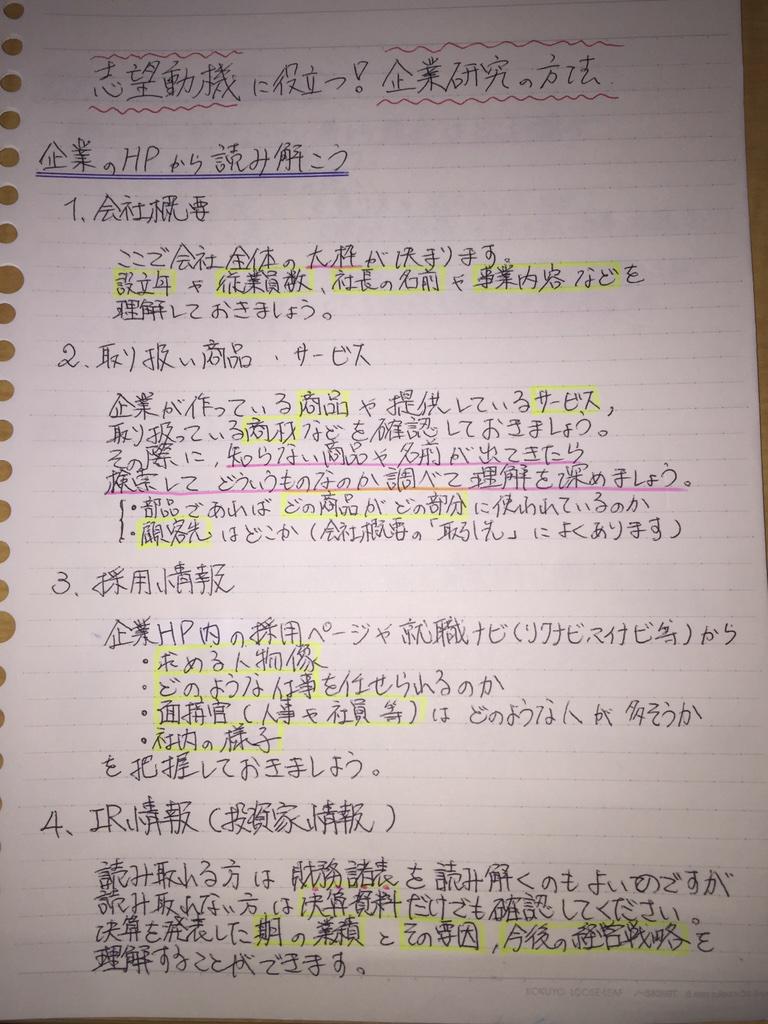 志望動機に役立つ! 企業研究の方法
企業のHPから読み解こう
1. 会社概要
ここで会社全体の大枠が決まります。
設立年や従業員数、社長の名前や事業内容などを
理解しておきましょう。
2. 取り扱い商品・サービス
企業が作っている商品や提供しているサービス,
取り扱っている商材などを確認しておきましょう。
その際に,知らない商品や名前が出てきたら
検索してどういうものなのか調べて理解を深めましょう。
・部品であればどの商品がどの部分に使われているのか
・顧客先はどこか(会社概要の「取引先」によくあります)
3. 採用情報
企業HP内の採用ページや就職ナビ(リクナビ,マイナビ等)から
・求める人物像
・どのような仕事を任せられるのか
・面接官(人事や社員等)はどのような人が多そうか
・社内の様子
を把握しておきましょう。
4、IR情報(投資家情報)
読み取れる方は財務諸表を読み解くのもよいのですが
読み取れない方は決算資料だけでも確認してください。
決算を発表した期の業績とその要因,今後の経営戦略を
理解することができます。
KOKUYO LOOSE-LEAF